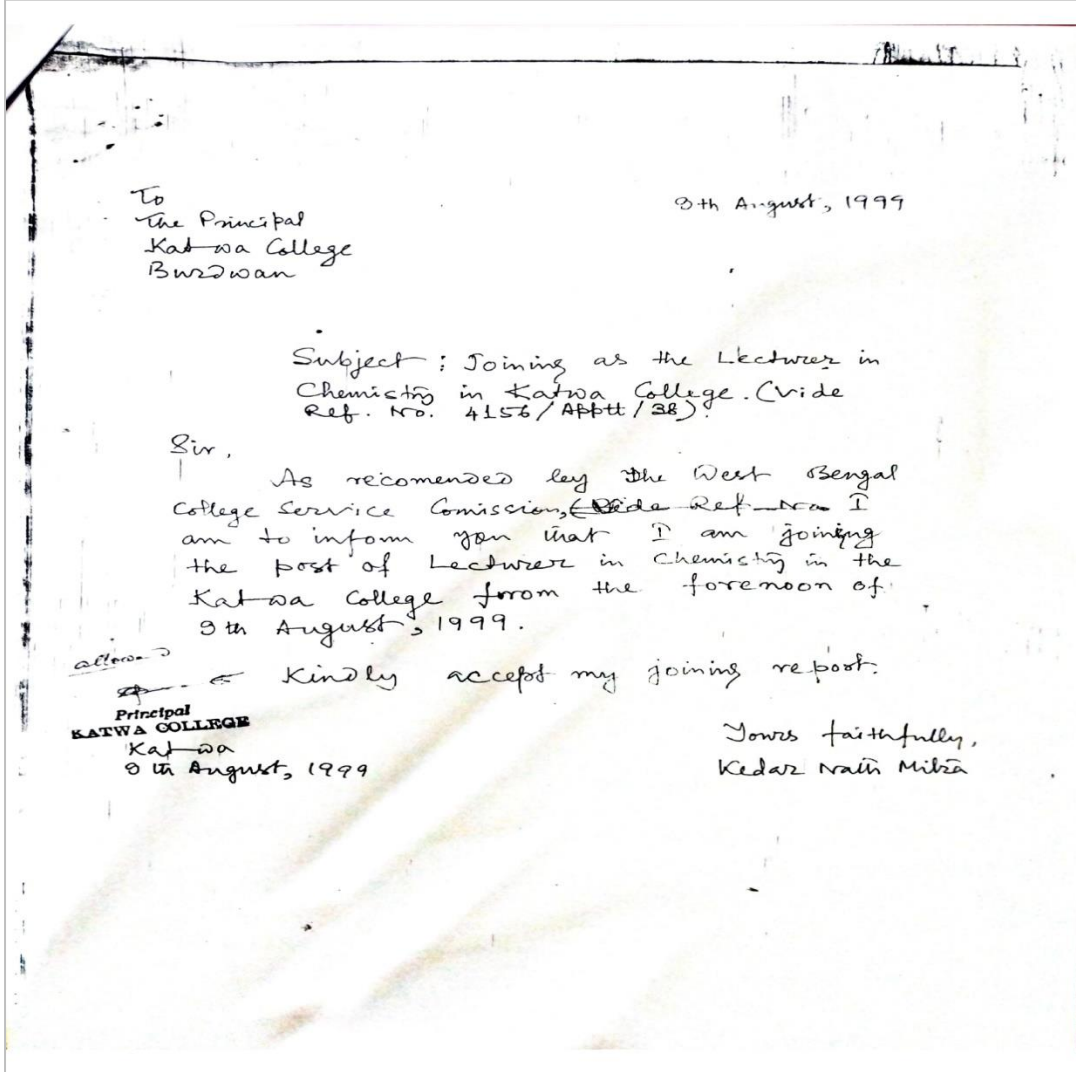 To
The Principal
Katwa College
Burdwan
9th August, 1999
Subject : Joining as the Lecturer in
Chemistry in Katwa College. (Vide
Ref. No. 4156/Apptt/38).
Sir,
As recomended by the West Bengal
College Service Comission, (Vide Ref No I
am to inform you that I am joining
the post of Lecturer in Chemistry in the
Katwa College from the forenoon of
9th August, 1999.
allowed
Kindly accept my joining report.
Principal
KATWA COLLEGE
Katwa
9th August, 1999
Yours faithfully,
Kedar Nath Mitra